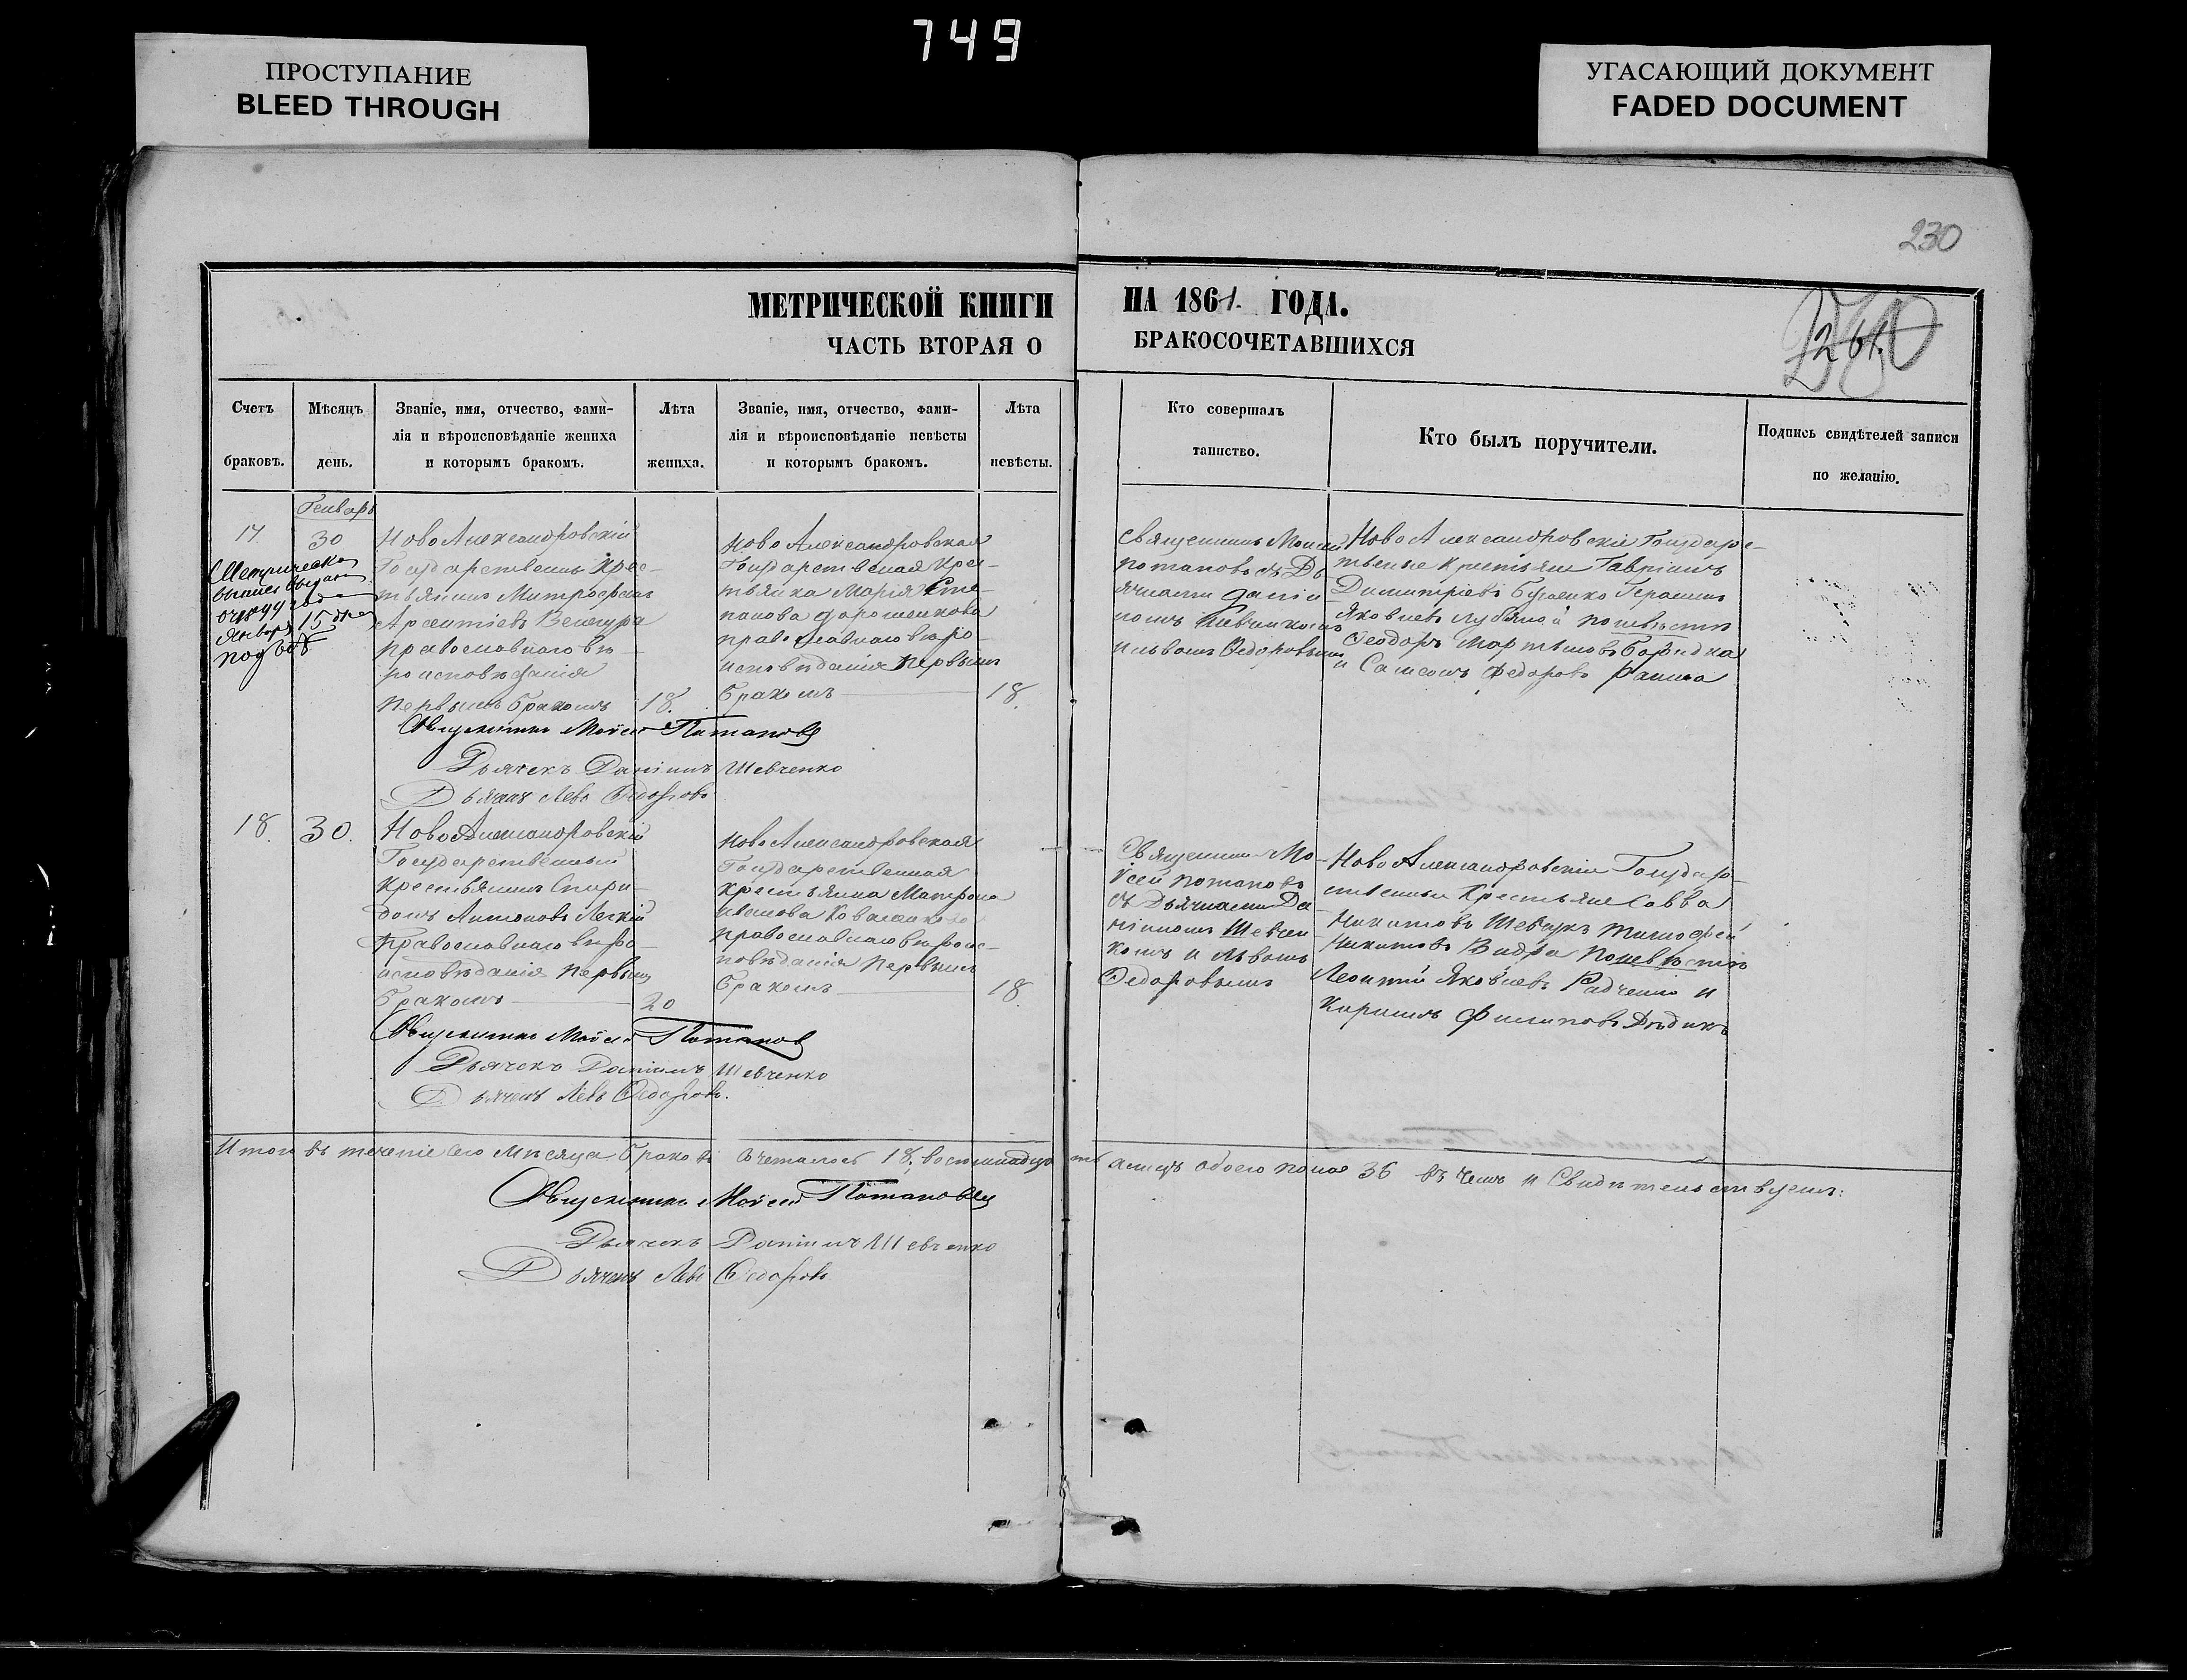 749
ПРОСТУПАНИЕ
BLEED THROUGH
УГАСАЮЩИЙ ДОКУМЕНТ
FADED DOCUMENT
230
МЕТРИЧЕСКОЙ КНИГИ НА 1861 ГОДА.
ЧАСТЬ ВТОРАЯ О БРАКОСОЧЕТАВШИХСЯ
261
Счетъ
браковъ.
Мѣсяцъ
день.
Званіе, имя, отчество, фами-
лія и вѣроисповѣданіе жениха
и которымъ бракомъ.
Лѣта
жениха.
Званіе, имя, отчество, фами-
лія и вѣроисповѣданіе невѣсты
и которымъ бракомъ.
Лѣта
невѣсты.
Кто совершалъ
таинство.
Кто былъ поручители.
Подпись свидѣтелей записи
по желанію.
Генварь
17.
30
Ново Александровскій
Государственнъ Крес-
тьянинъ Митрофанъ
Арсентіевъ Венгура
православнаго вѣ-
роисповѣданія
первымъ бракомъ
18.
Ново Александровская
Государственная Крес-
тьянка Марія Сте-
панова Дорошенкова
православнаго вѣро-
исповѣданія первымъ
бракомъ
18.
Священникъ Моисей
Потаповъ съ Дь-
ячками Даніи-
ломъ Шевченкомъ
и Львомъ Федоровымъ
Ново Александровскіе Государс-
твенные Крестьяне Гавріилъ
Димитріевъ
Яковлевъ Лубяной по невѣстѣ
Феодоръ Мартыновъ
и Самсонъ Федоровъ
Января 15 дня
Священникъ Моисей Потаповъ
Дьячекъ Даніилъ Шевченко
Дьячекъ Левъ Федоровъ
18.
30.
Ново Александровскій
Государственный
Крестьянинъ Спири-
донъ Антоновъ Легкій
Православнаго вѣро-
исповѣданія первымъ
бракомъ
20
Ново Александровская
Государственная
крестьянка Матрона
Иванова Коваленкова
православнаго вѣроис-
повѣданія Первымъ
бракомъ
18.
Священникъ Мо-
исей Потаповъ
съ Дьячками Да-
ніиломъ Шевчен-
комъ и Львомъ
Федоровымъ
Ново Александровскіе Государ-
ственные Крестьяне Савва
Никитовъ Шевчукъ Тимофей
Никитовъ Выдра по невѣстѣ
Леонтій Яковлевъ Радченко и
Кирилъ Филиповъ Дѣдикъ
Священникъ Моисей Потаповъ
Дьячекъ Даніилъ Шевченко
Дьячекъ Левъ Федоровъ.
Итого въ теченіе сего мѣсяца браковъ сочеталось 18, восемнадцать а лицъ обоего пола 36 въ чемъ и Свидѣтельствуемъ:
Священникъ Моисей Потаповъ
Дьячекъ Даніилъ Шевченко
Дьячекъ Левъ Федоровъ